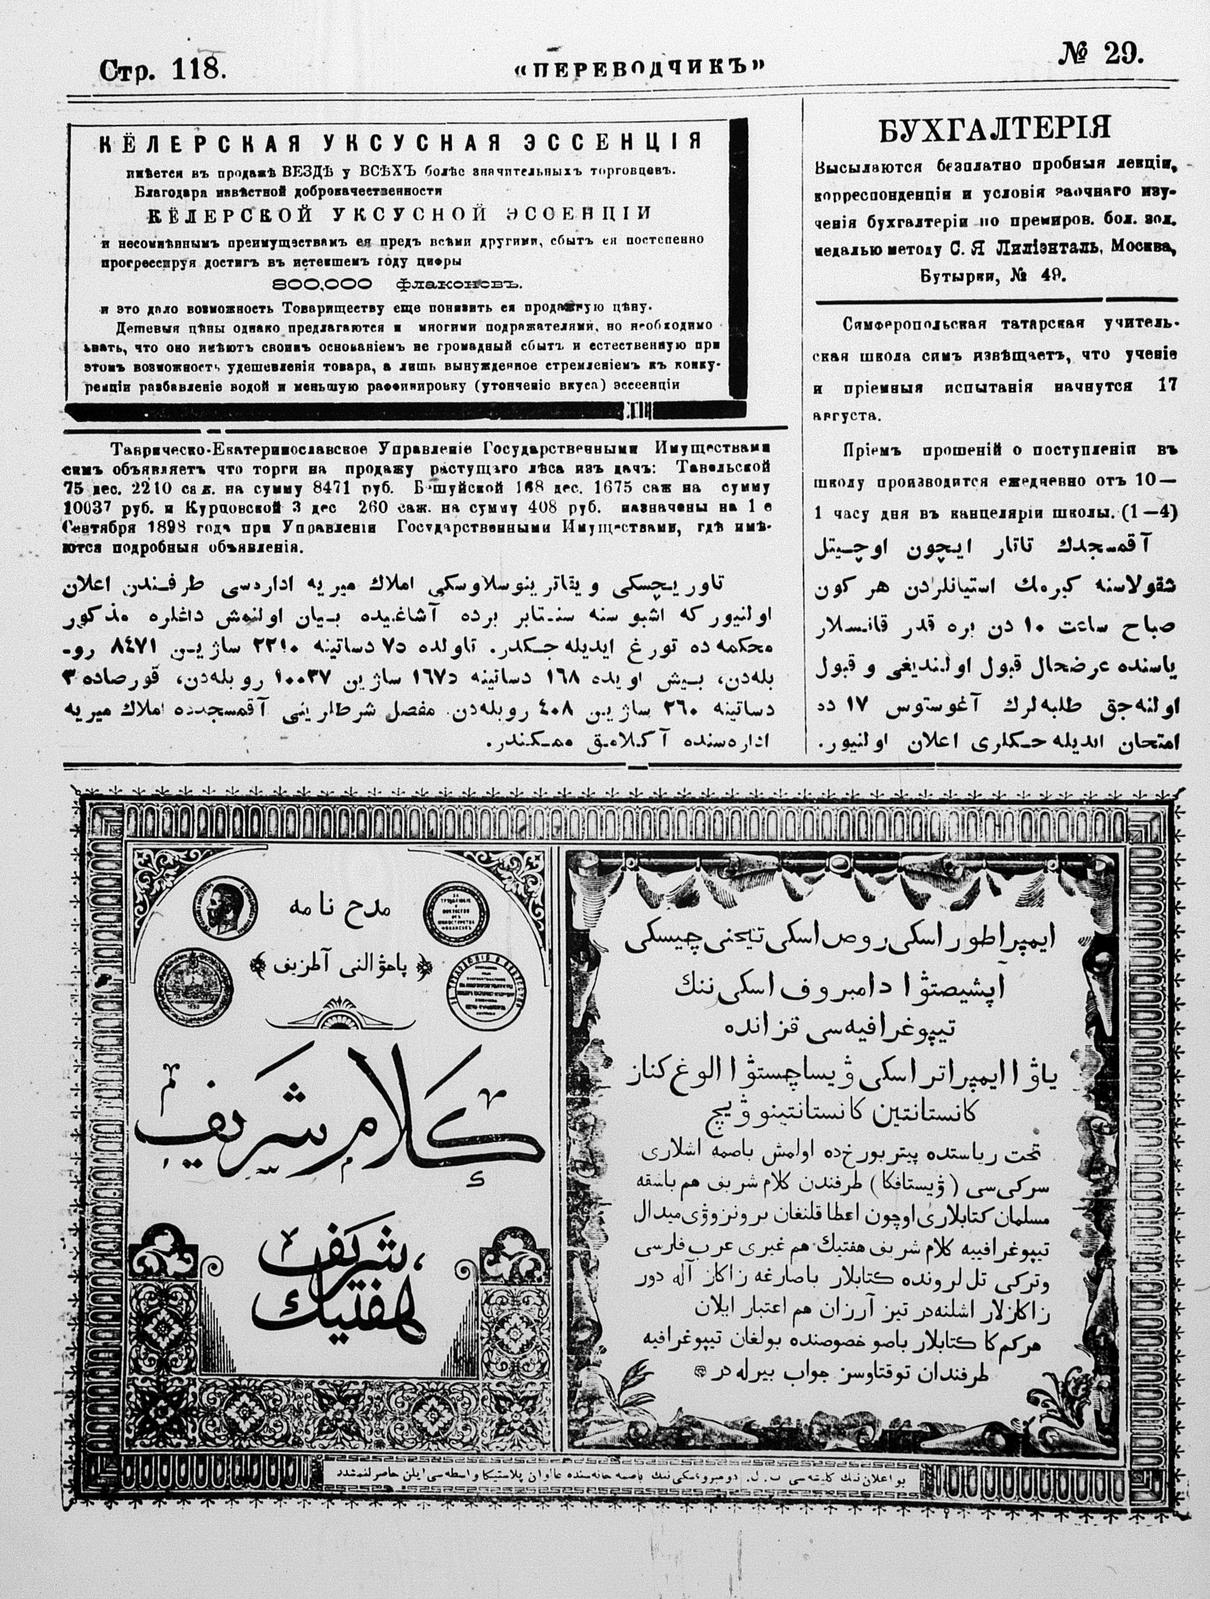 Стр. 118.
«ПЕРЕВОДЧИКЪ»
№ 29.
КЁЛЕРСКАЯ УКСУСНАЯ ЭССЕНЦІЯ
имѣется въ продажѣ ВЕЗДѢ у ВСѢХЪ болѣе значительныхъ торговцевъ.
Благодара извѣстной доброкачественности
КЁЛЕРСКОЙ УКСУСНОЙ ЭССЕНЦІИ
и несомнѣннымъ преимуществамъ ея предъ всѣми другими, сбытъ ея постепенно
прогрессируя достигъ въ истекшемъ году цифры
800,000 флаконовъ.
и это дало возможность Товариществу еще понизить ея продажную цѣну.
Дешевыя цѣны однако предлагаются и многими подражателями, но необходимо
знать, что оно имѣютъ своимъ основаніемъ не громадный сбытъ и естественную при
этомъ возможность удешевленія товара, а лишь вынужденное стремленіемъ къ конку-
ренціи разбавленіе водой и меньшую раффинировку (утонченіе вкуса) эссенціи
Таврическо-Екатеринославское Управленіе Государственными Имуществами
симъ объявляетъ что торги на продажу растущаго лѣса изъ дачъ: Тавельской
75 дес. 2210 саж. на сумму 8471 руб. Бешуйской 168 дес. 1675 саж на сумму
10037 руб. и Курцовской 3 дес 260 саж. на сумму 408 руб. назначены на 1 е
Сентября 1898 года при Управленіи Государственными Имуществами, гдѣ имѣ-
ются подробныя объявленія.
تاور يچسكی و يقاتر ينوسلاوسكی املاك ميريه اداره‌سی طرفندن اعلان
اولنيور كه اشبو سنه سنتابر برده آشاغيده بيان اولنمش داغلره مذكور
محكمه ده تورغ ايديله جكدر. تاولده ٧٥ دساتينه ٢٢١٠ ساژين ٨٤٧١ رو-
بله‌دن، بيش اويده ١٦٨ دساتينه ١٦٧٥ ساژين ١٠٠٣٧ روبله‌دن، قورصاده ٣
دساتينه ٢٦٠ ساژين ٤٠٨ روبله‌دن. مفصل شرطلرينی آقمسجدده املاك ميريه
اداره‌سنده آكلامق ممكندر.
БУХГАЛТЕРІЯ
Высылаются безплатно пробныя лекціи,
корреспонденціи и условія заочнаго изу-
ченія бухгалтеріи по премиров. бол. зол.
медалью методу С. Я Лиліэнталь, Москва,
Бутырки, № 49.
Симферопольская татарская учитель-
ская школа симъ извѣщаетъ, что ученіе
и пріемныя испытанія начнутся 17
августа.
Пріемъ прошеній о поступленіи въ
школу производится ежедневно отъ 10—
1 часу дня въ канцеляріи школы. (1—4)
آقمسجدك تاتار ايچون اوچيتل
شقولاسنه كيرمك استيانلردن هر كون
صباح ساعت ١٠ دن بره قدر قانسلار
ياسنده عرضحال قبول اولنديغی و قبول
اولنه‌جق طلبه‌لرك آغوستوس ١٧ ده
امتحان ايديله جكلری اعلان اولنيور.
مدح نامه
پاحۋالنی آطزيف
كلام شريف
هفتيك شريف
ايمپراطور اسكی روص اسكی تيخنی چيسكی
آپشيصتۋا دامبروف اسكی ننك
تيپوغرافيه‌سی قزانده
ياۋ ا ايمپراتر اسكی ۋيساچستۋا الوغ كناز
كانستانتين كانستانتينوۋيچ
تحت رياستده پيتربورخ‌ده اولمش باصمه اشلاری
سركی‌سی (ۋيستافكا) طرفندن كلام شريف هم باشقه
مسلمان كتابلاری اوچون اعطا قلنغان برونزوۋی ميدال
تيپوغرافييه كلام شريف هفتيك هم غيری عرب فارسی
وتركی تل‌لرونده كتابلار باصارغه زاكاز آله دور
زاكازلار اشلنه‌در تيز آرزان هم اعتبار ايلان
هركم كا كتابلار باصو خصوصنده بولغان تيپوغرافيه
طرفندان توقتاوسز جواب بيرله در